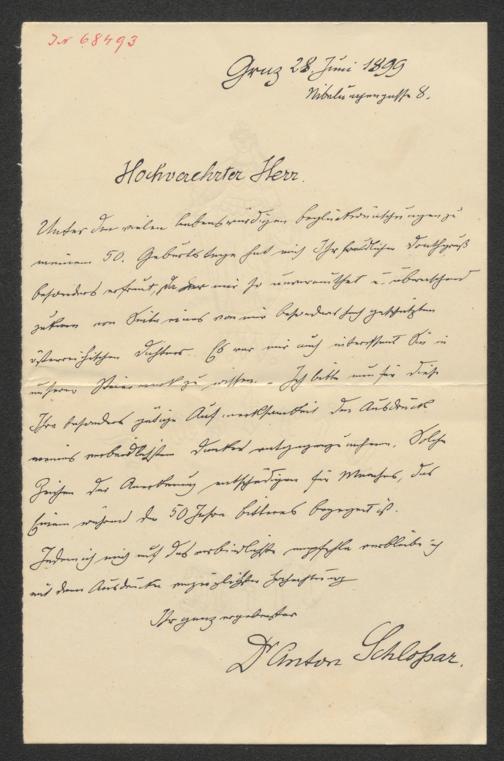 JN 68493
Graz 28 Juni 1899
Nibelungengasse 8.
Hochverehrter Herr.
Unter den vielen liebenswürdigen Beglückwünschungen zu
meinem 50. Geburtstage hat mich Ihr Drahtgruß
besonders erfreut, da er mir so unvermuthet u. überraschend
zukam von Seite eines von mir besonders hoch geschätzten
österreichischen Dichters. Es war mir auch Sie in
unserer Steiermark zu wissen. – Ich bitte nun für diese
Ihre besonders gütige Aufmerksamkeit den Ausdruck
meines verbindlichsten Dankes entgegenzunehmen. Solche
Zeichen der Anerkennung entschädigen für Manches, das
Einem während der 50 Jahre bitteres begegnet ist.
Indem ich mich auf das verbindlichste empfehle verbleibe ich
mit dem Ausdrucke vorzüglichster Hochachtung
Ihr ganz ergebenster
Dr Anton Schlossar.